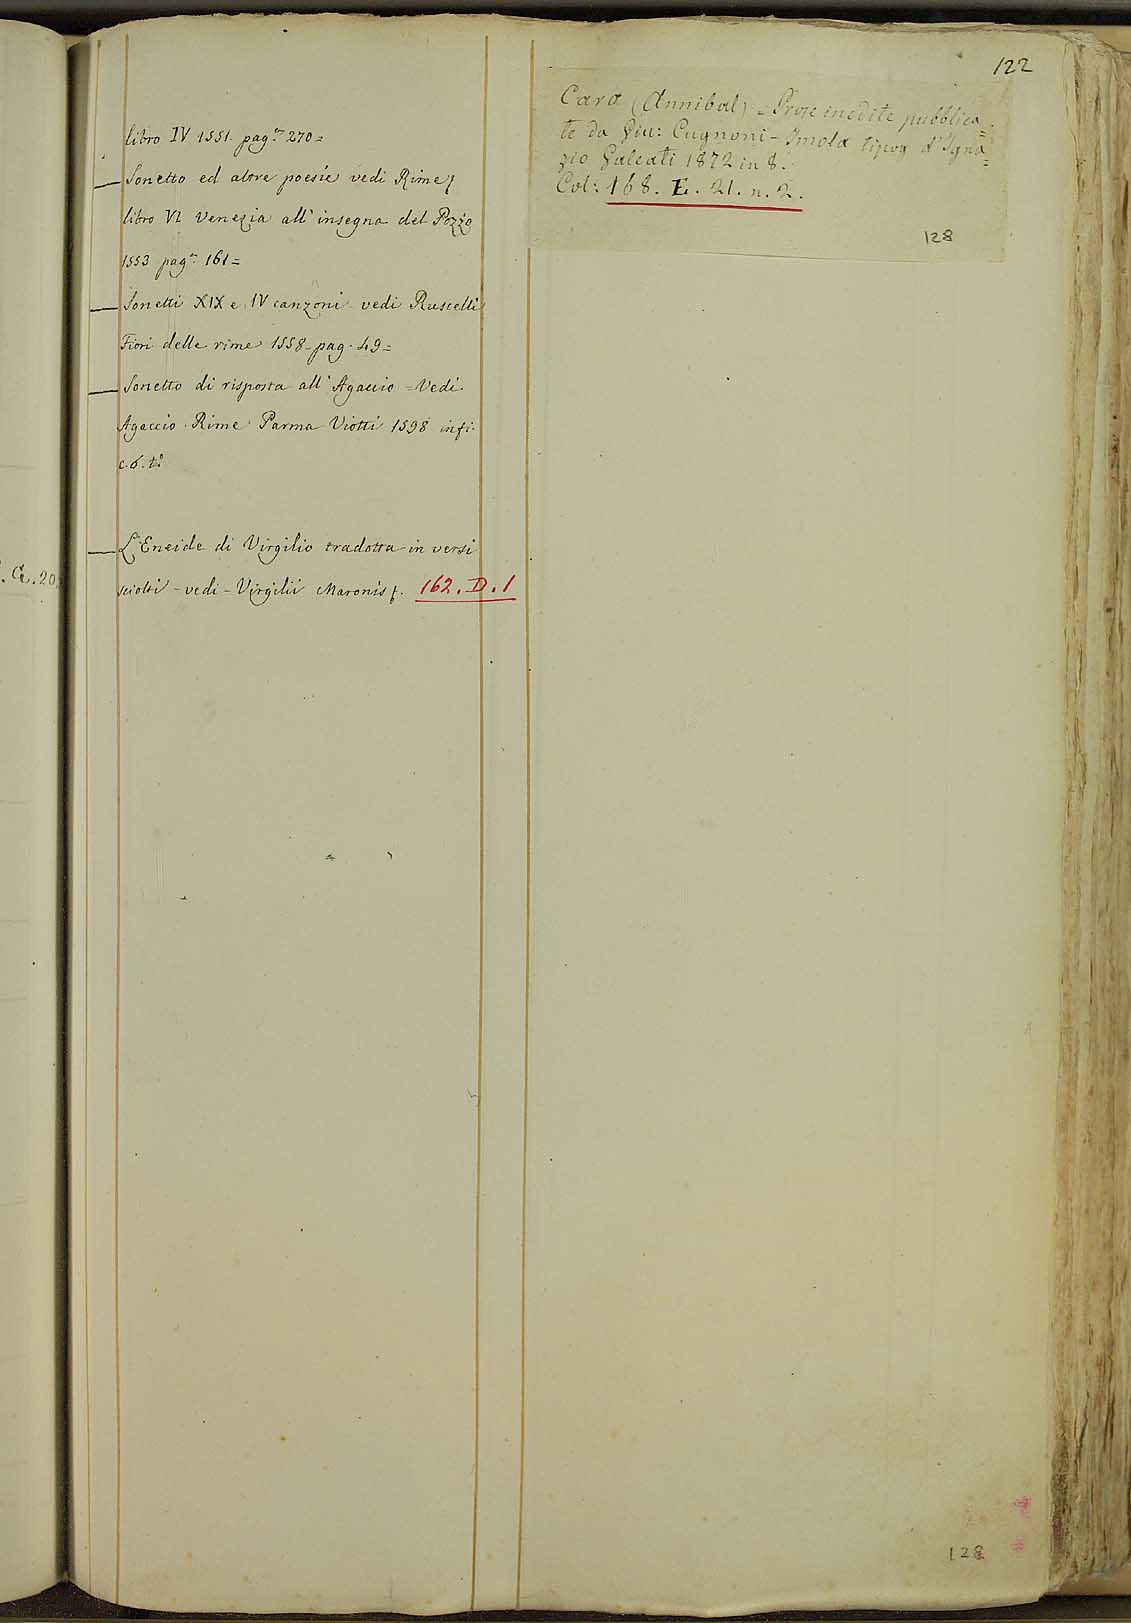 122
libro IV 1551. pag.ª 270=
— Sonetto ed altre poesie vedi Rime
libro VI Venezia all'insegna del Pozzo
1553 pag.ª 161=
— Sonetti XIX e IV canzoni vedi Ruscelli
Fiori delle rime 1558 - pag. 49=
— Sonetto di risposta all'Agaccio = Vedi.
Agaccio. Rime Parma Viotti 1598 in
c. 6. t.º
— L'Eneide di Virgilio tradotta in versi
sciolti - vedi - Virgilii Maronis 162. D. 1
. G. 20
Caro (Annibal) = Prose inedite pubblica=
te da Giu: Cugnoni - Imola tipog d'Igna=
zio Galeati 1872 in 8.
Col: 168. E. 21. n. 2.
128
128